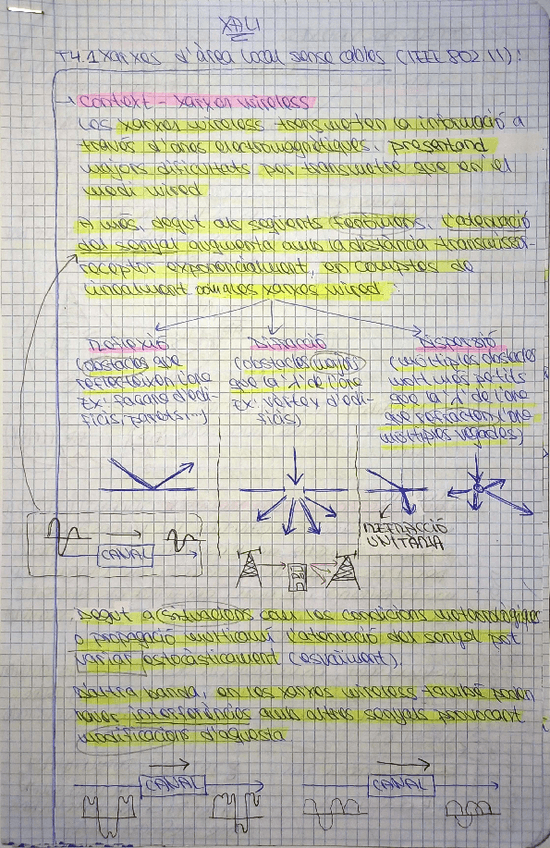 XALI
T4.1 Xarxes d'àrea local sense cables (IEEE 802.11):
Context - Xarxes wireless
Les xarxes wireless transmeten la informació a
través d'ones electromagnètiques, presentand
majors dificultats per transmetre que en el
medi wired
A més, degut als següents fenòmens, l'atenuació
del senyal augmenta amb la distància transmissor-
receptor exponencialment, en comptes de
linealment com a les xarxes wired.
Reflexió
(obstacles que
reflecteixen l'ona
Ex: façana d'edi-
ficis, parets...)
Difracció
(obstacles majors
que la λ de l'ona
Ex: vèrtex d'edi-
ficis)
Dispersió
(múltiples obstacles
molt més petits
que la λ de l'ona
que refracten l'ona
múltiples vegades)
REFRACCIÓ
UNITÀRIA
CANAL
Degut a situacions com les condicions meteorològiques
o propagació multicamí l'atenuació del senyal pot
variar estocàsticament (esvaïment).
D'altra banda, en les xarxes wireless també poden
haver interferències amb altres senyals provocant
modificacions d'aquesta
CANAL
CANAL